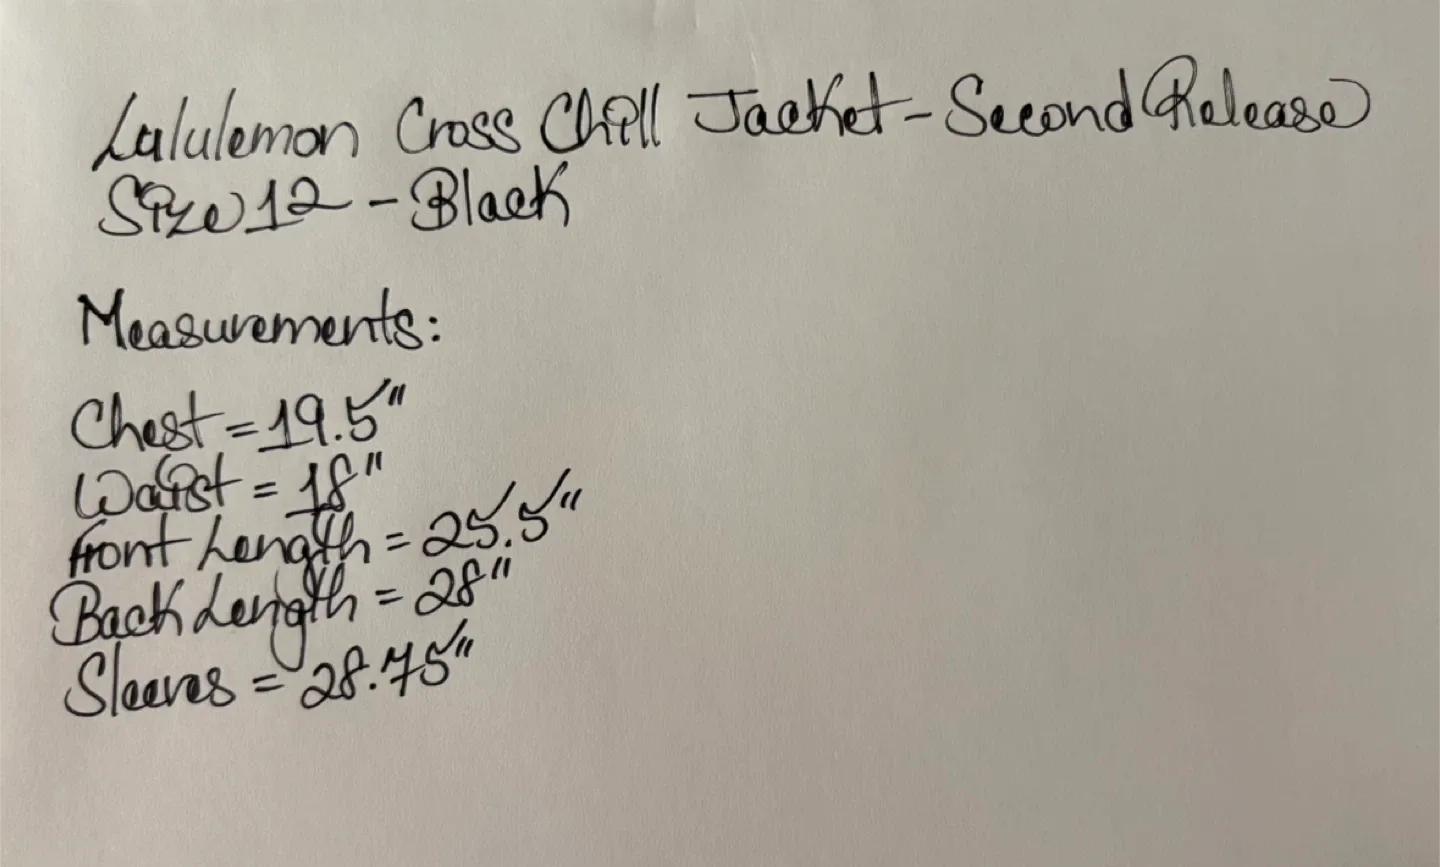 Lululemon Cross Chill Jacket - Second Release
Size 12 - Black
Measurements:
Chest = 19.5"
Waist = 18"
front Length = 25.5"
Back Length = 28"
Sleeves = 28.75"